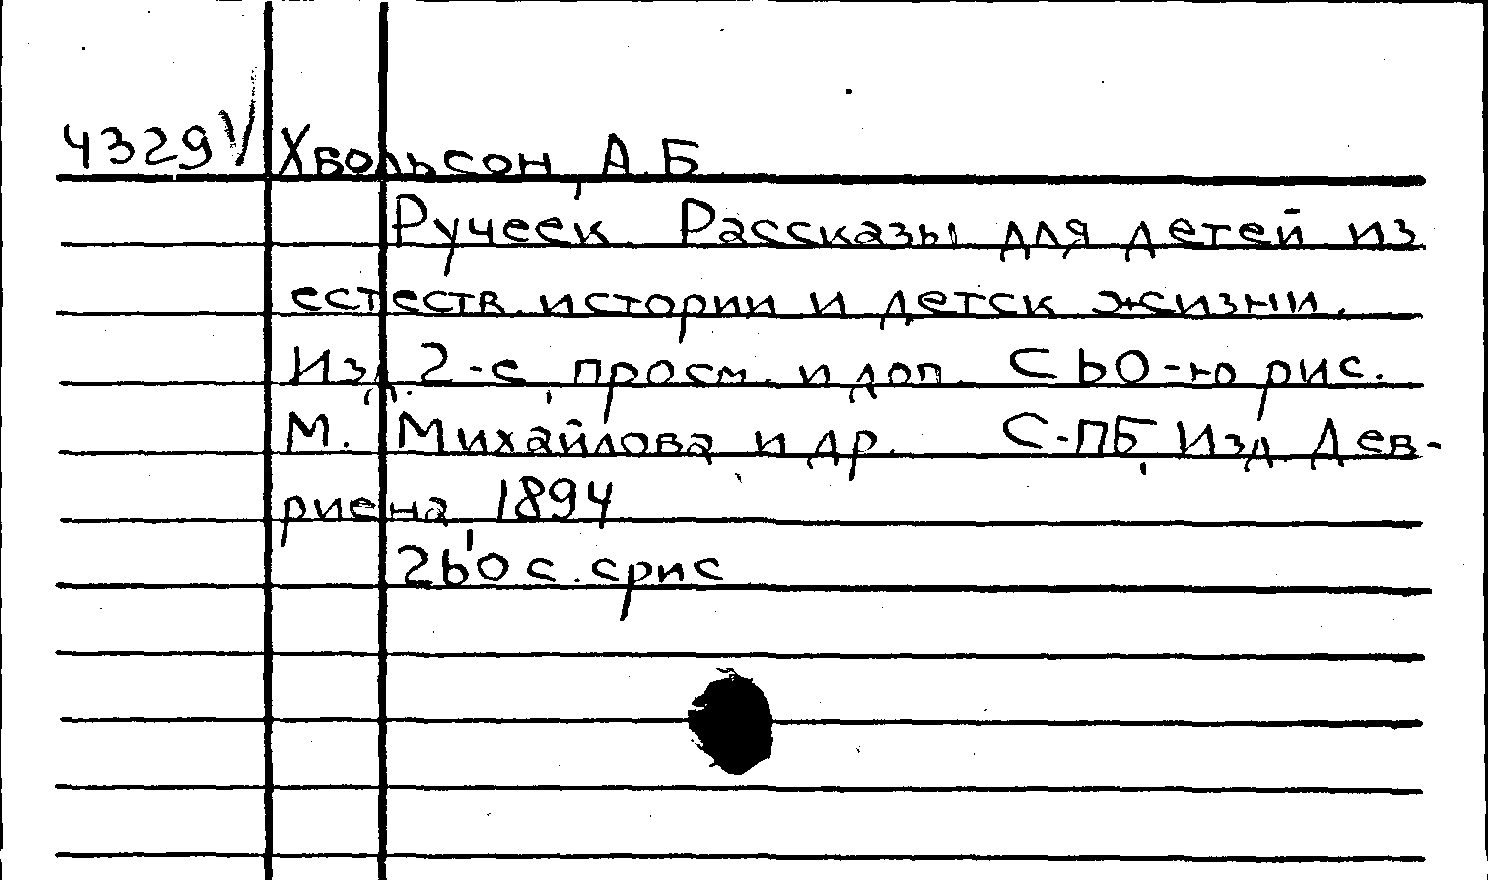 4329 V Хвольсон, А.Б.
Ручеек. Рассказы для детей из
естеств. истории и детск жизни.
Изд. 2-е, просм. и доп. С 60-ю рис.
М. Михайлова и др. С-ПБ, Изд Дев-
риена, 1894
260 с. с рис